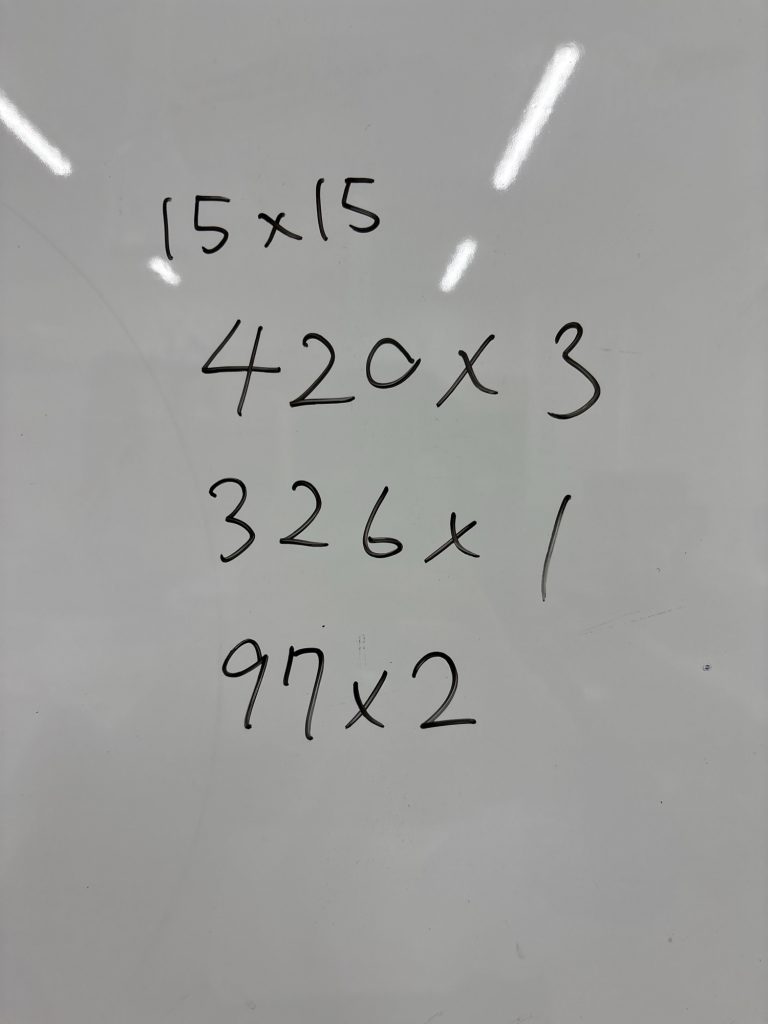 15×15
420×3
326×1
97×2